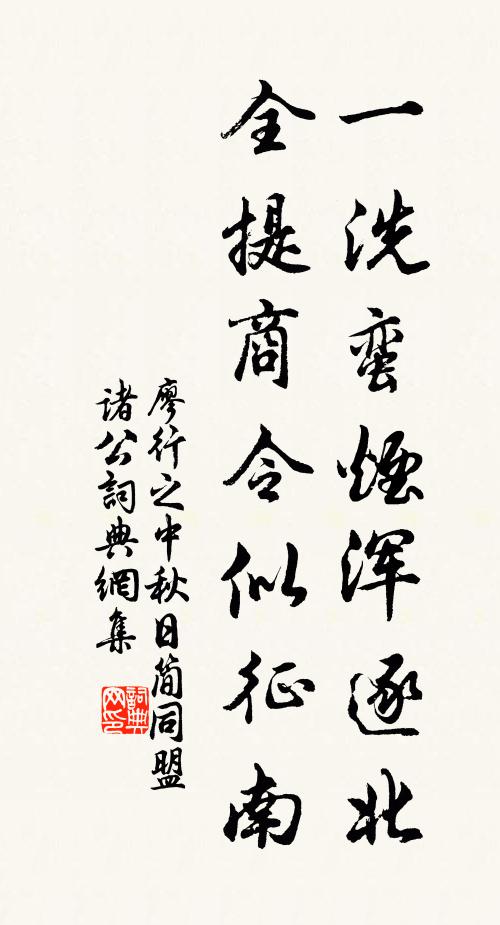 一洗蛮煙浑逐北
全提商令似征南
廖行之中秋日简同盟
诸公詞典網集
詞典网印